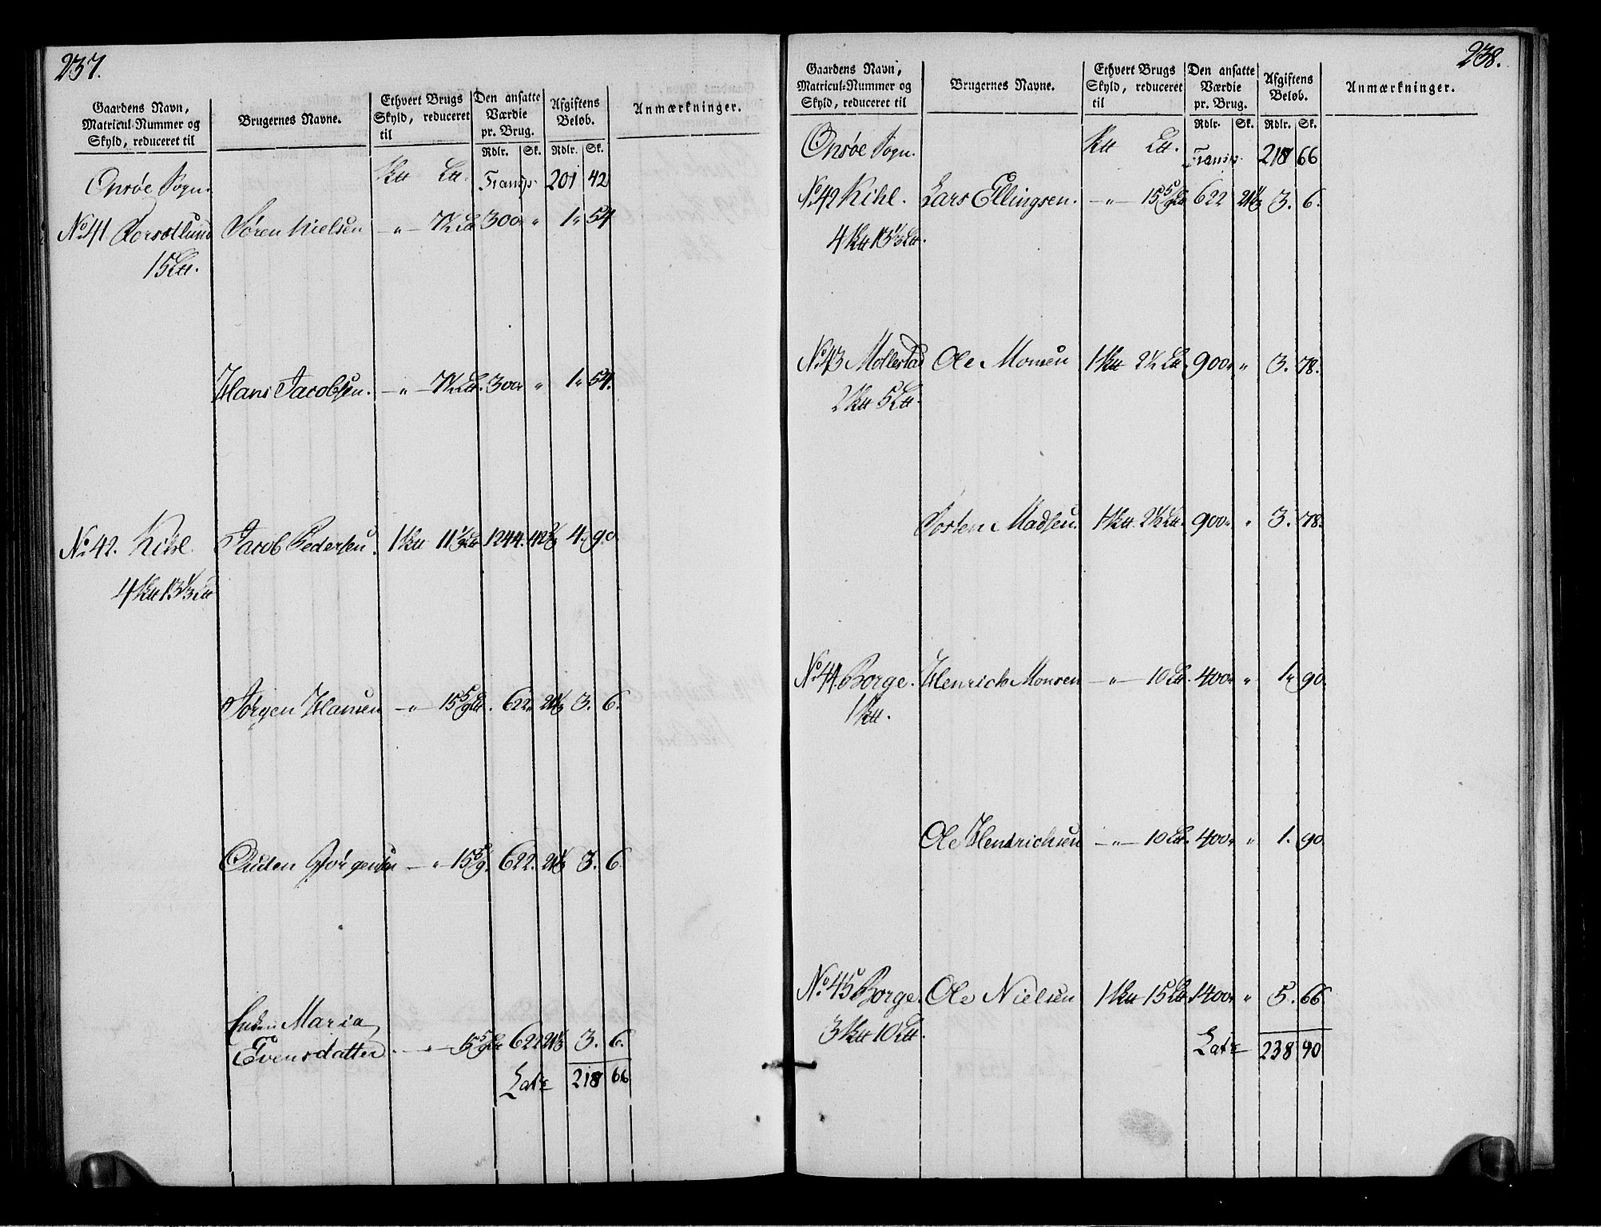 237.
Gaardens Navn, Matricul-Nummer og Skyld, reduceret til | Brugernes Navne. | Ethvert Brugs Skyld, reduceret til | Den ansatte Værdie pr. Brug. Rdlr. Sk. | Afgiftens Beløb. Rdlr. Sk. | Anmærkninger.
Onsøe Sogn. | Transp. 201 42
No 41 Søren Nielsen — " — 7½ 300 " 1 " 54
15
Hans Jacobsen. — " — 7½ 300 " 1 " 54.
No 42. Kihl. Jacob Pedersen. 1 11 1244. 42 4 " 90
4 13⅓
Jørgen Hansen — " — 15 5/9 622 " 21⅓ 3. 6.
Auden Jørgensen — " 15 5/9. 622. 21⅓ 3. 6.
Enken Maria
Evensdatter. — " — 15 5/9 622 21⅓ 3. 6.
Late 218 66
238.
Gaardens Navn, Matricul-Nummer og Skyld, reduceret til | Brugernes Navne. | Ethvert Brugs Skyld, reduceret til | Den ansatte Værdie pr. Brug. Rdlr. Sk. | Afgiftens Beløb. Rdlr. Sk. | Anmærkninger.
Onsøe Sogn. | Transp. 218 66
No 42 Kihl. Lars Ellingsen. — " — 15 5/9 622 21⅓ 3. 6.
4 13⅓
No 43 Mollestad Ole Monsen 1 2½ 900 " " 3. 78.
2 5
Torsten Madsen. 1 2½ 900 " " 3. 78.
No 44. Borge. Henrich Monsen — " — 10 400 " " 1 " 90.
1
Ole Hendrichsen — " — 10 400 " " 1. 90
No 45 Borge. Ole Nielsen 1 15 1400 " " 5. 66
3 10
Late 238 40